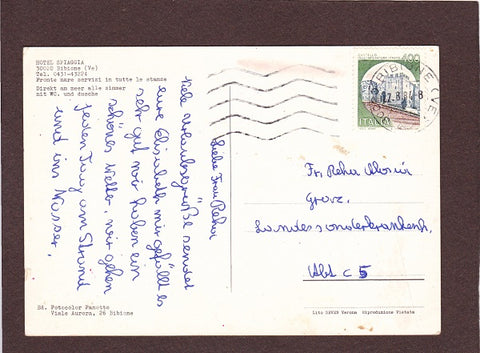 HOTEL SPIAGGIA
30020 Bibione (Ve)
Tel. 0431-43224
Fronte mare servizi in tutte le stanze
Direkt am meer alle zimmer
mit WC. und dusche
Liebe Frau Reha
viele Urlaubsgrüße sendet
eure Elisabeth mir gefällt es
sehr gut wir haben ein
schönes Wetter, wir gehen
jeden Tag am Strand
und ins Wasser.
Ed. Fotocolor Panotto
Viale Aurora, 26 Bibione
BIBIONE (VE)
ITALIA
Fr. Reha Maria
Graz.
Landessonderkrankenh.
Abt C 5
Lito SEVEN Verona Riproduzione Vietata